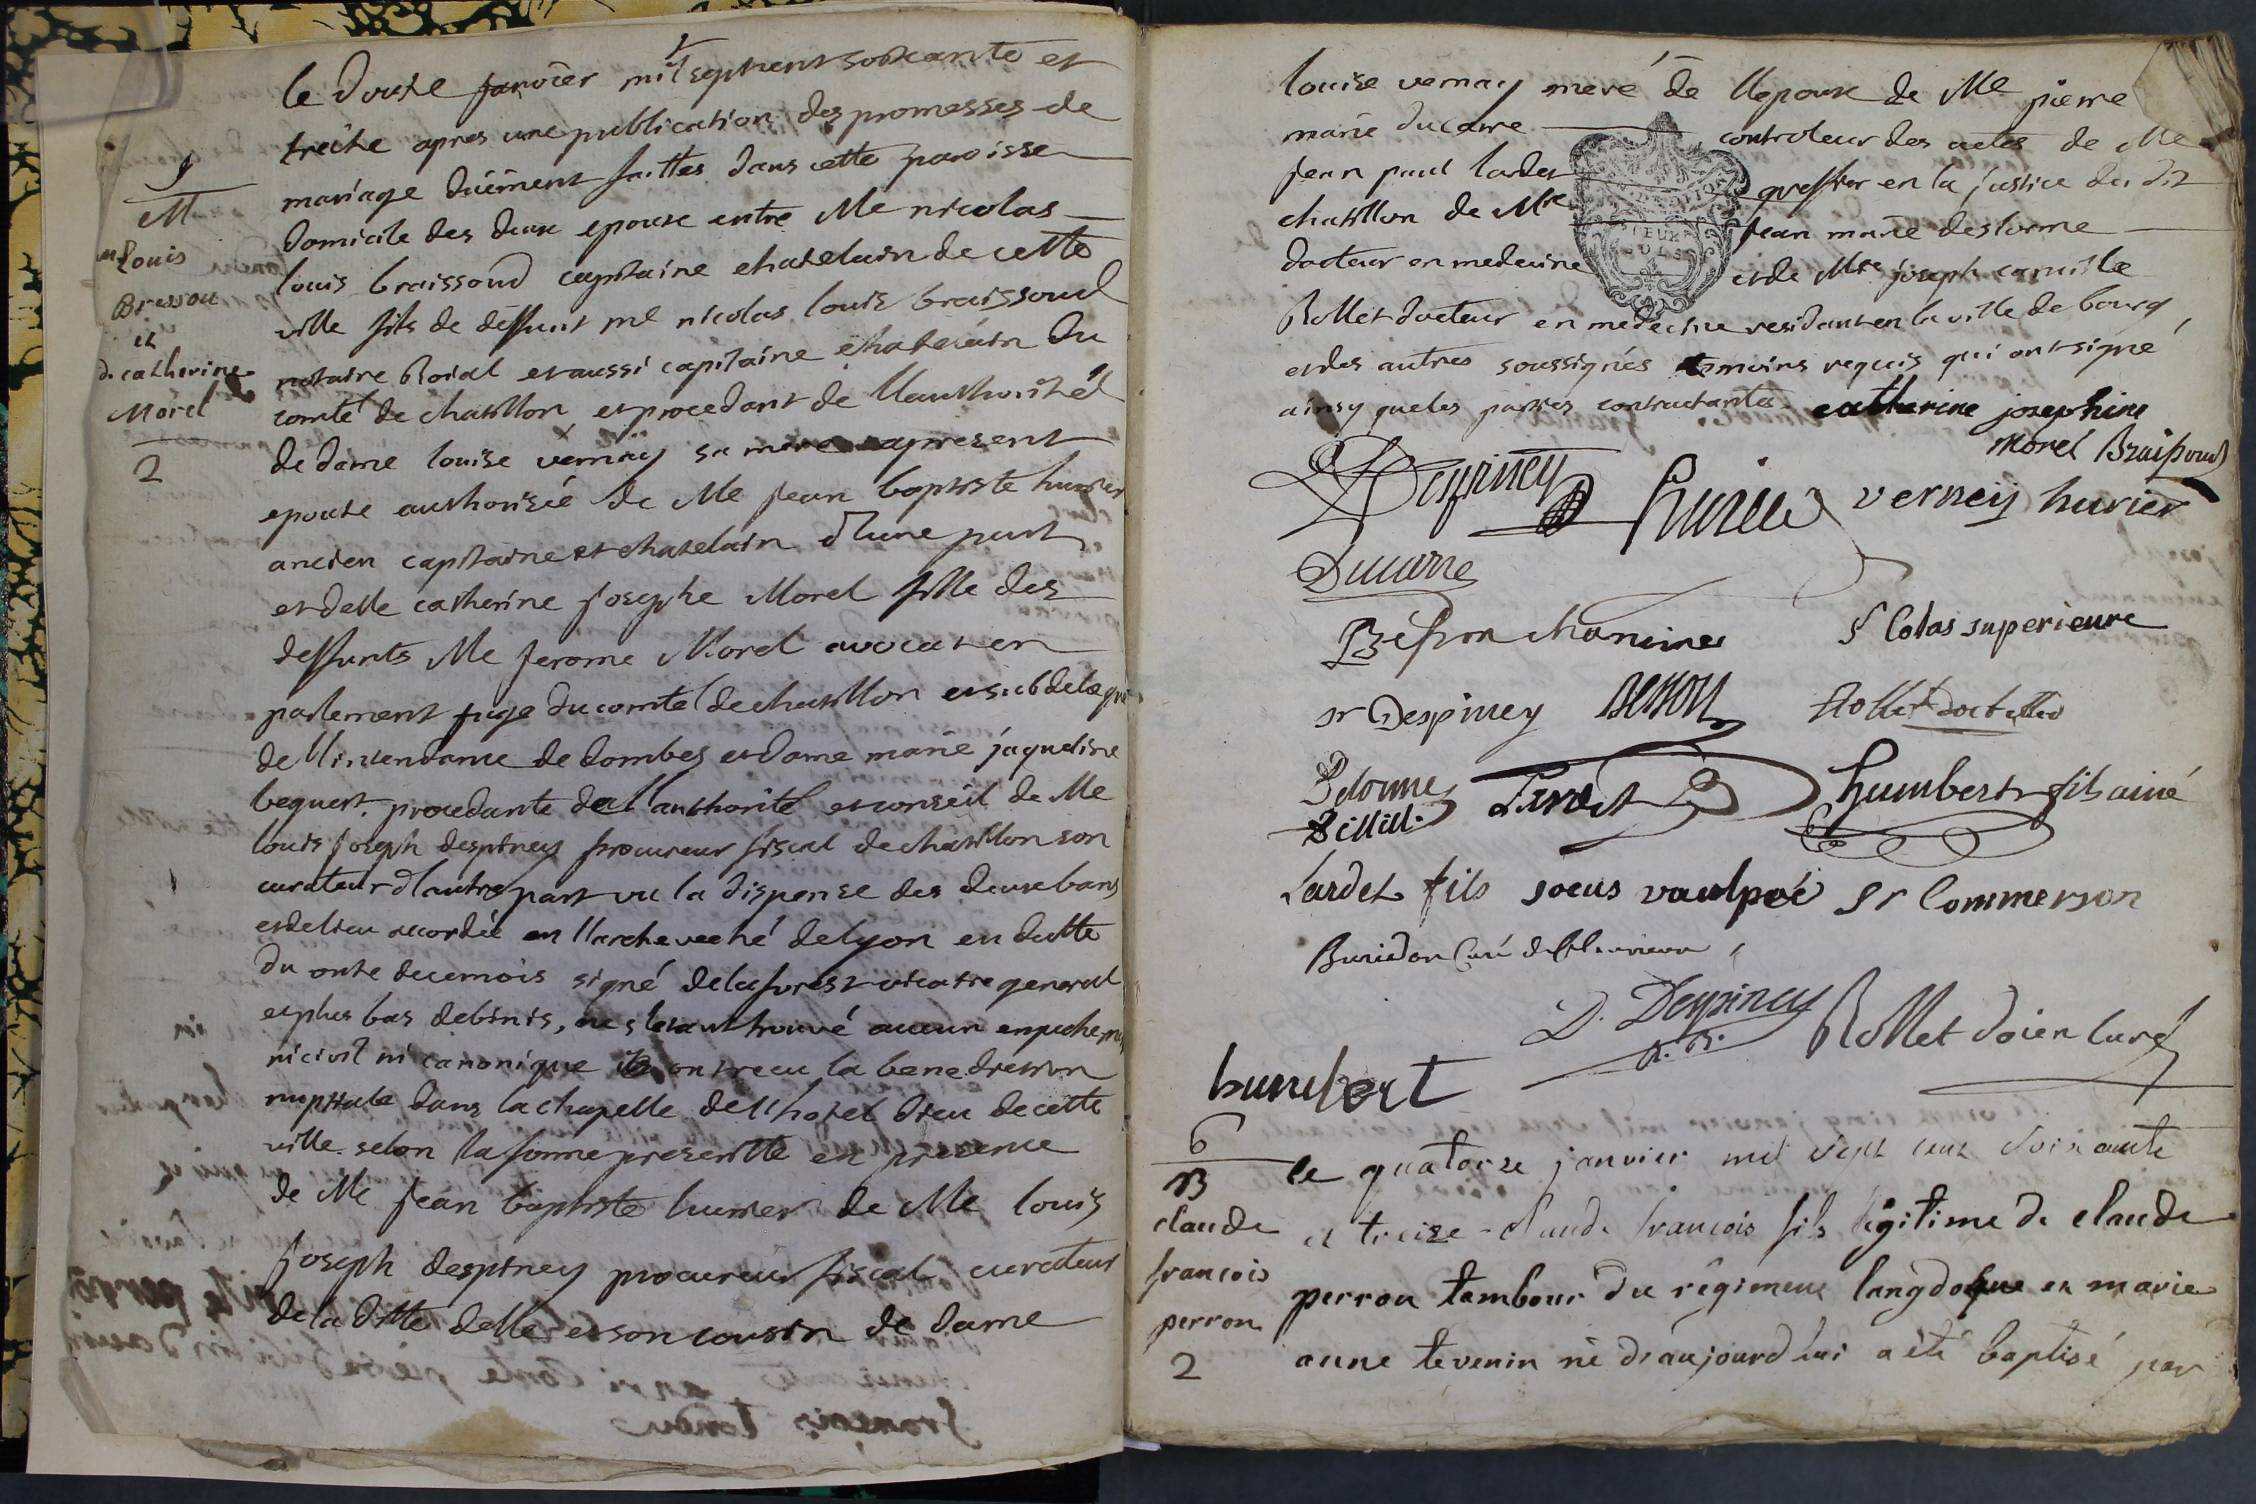 M
Louis
Bresson
et
d. catherine
Morel
2
le douze janvier mil sept cent soixante et
treize apres une publication des promesses de
mariage düement faittes dans cette paroisse
domicile des deux epoux entre Me nicolas
louis braissoud capitaine chatelain de cette
ville fils de deffunt me nicolas louis braissoud
notaire Roial et aussi capitaine chatelain du
comté de chatillon et procedant de l'authorité
de dame louise vernay sa mere a present
epouse authorisée de Me jean baptiste hurier
ancien capitaine et chatelain d'une part
et delle catherine josephe Morel fille des
deffunts Me jerome Morel avocat en
parlement juge du comté de chatillon et subdelegué
de l'intendance de dombes et dame marie jaqueline
bequert procedante de l'authorité et conseil de Me
louis joseph despiney procureur fiscal de chatillon son
curateur d'autre part vu la dispense des deux bans
et de lieu accordée en l'archeveché de lyon en datte
du onze de ce mois signé de la forest vicaire general
et plus bas debinis, ne s'etant trouvé aucun empechement
ni civil ni canonique ils ont recu la benediction
nuptiale dans la chapelle de l'hotel dieu de cette
ville selon la forme prescritte en presence
de Me jean baptiste hurier de Me louis
joseph despiney procureur fiscal curateur
de la ditte delle et son cousin de dame
louise vernay mere de l'epoux de Me pierre
marie ducarre controleur des actes de Me
jean paul lardet greffier en la justice du dit
chatillon de Mre jean marie deslorme
docteur en medecine et de Mre joseph camille
Rollet docteur en medecine residant en la ville de bourg
et des autres soussignés temoins requis qui ont signé
ainsy que les parties contractantes. catherine josephine
morel Braissoud
Despiney hurier verney hurier
Ducarre
Besson chanoine Sr Colas superieure
sr Despiney Besson Rollet doct
Delorme Lardet humbert fils ainé
Lardet fils soeur vaulpré Sr Commerson
Buridon Curé de
D. Despiney Rollet doien curé
humbert
6
B
claude
francois
perron
2
le quatorze janvier mil sept cent soixante
et treize claude francois fils légitime de claude
perron tambour du régiment langdoque et marie
anne tevenin né d'aujourd hui a été baptisé par